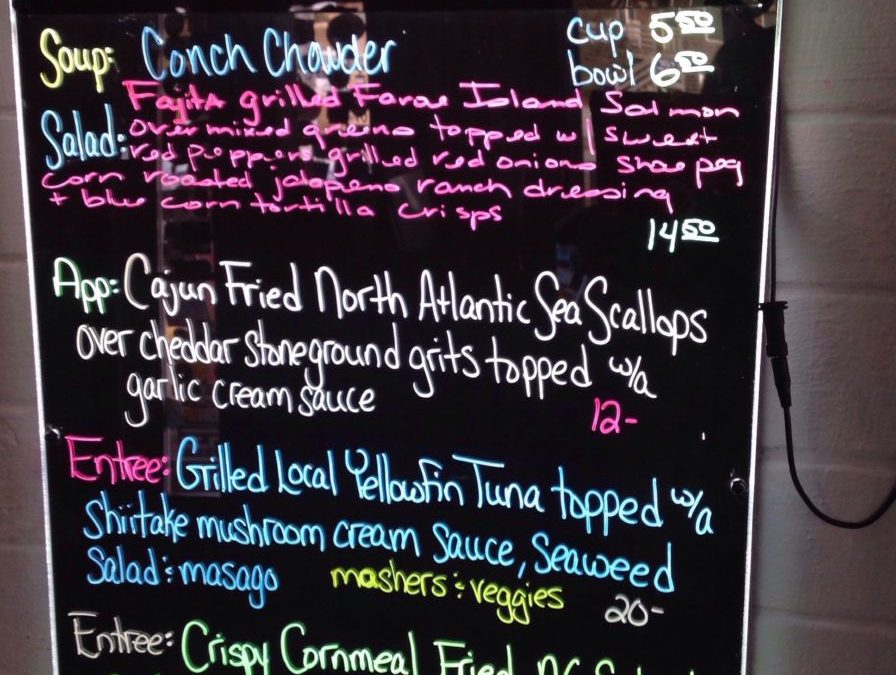 Soup: Conch Chowder cup 5.50
bowl 6.50
Fajita grilled Faroe Island Salmon
Salad: over mixed greens topped w/ sweet
red peppers grilled red onions shoe peg
corn roasted jalapeno ranch dressing
+ blue corn tortilla crisps
14.50
App: Cajun Fried North Atlantic Sea Scallops
over cheddar stoneground grits topped w/a
garlic cream sauce
12-
Entree: Grilled Local Yellowfin Tuna topped w/a
Shiitake mushroom cream sauce, Seaweed
Salad & masago mashers & veggies 20-
Entree: Crispy Cornmeal Fried NC